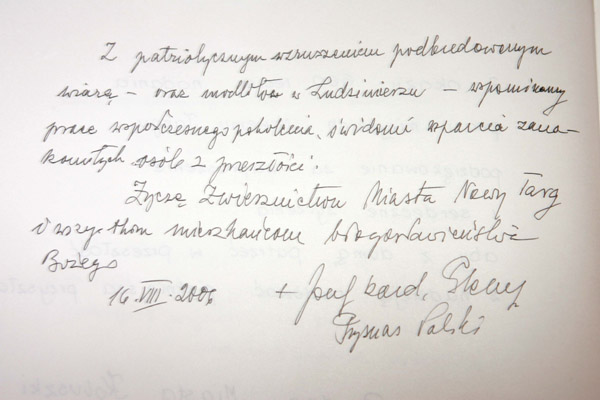 Z patriotycznym wzruszeniem podbudowanym
wiarą - oraz modlitwą w Ludzimierzu - wspominamy
prace współczesnego pokolenia, świadomi wsparcia zna-
komitych osób z przeszłości.
Życzę Zwierzchnictwu Miasta Nowy Targ
i wszystkim mieszkańcom błogosławieństwa
Bożego
16.VIII.2006 + Józef kard. Glemp
Prymas Polski